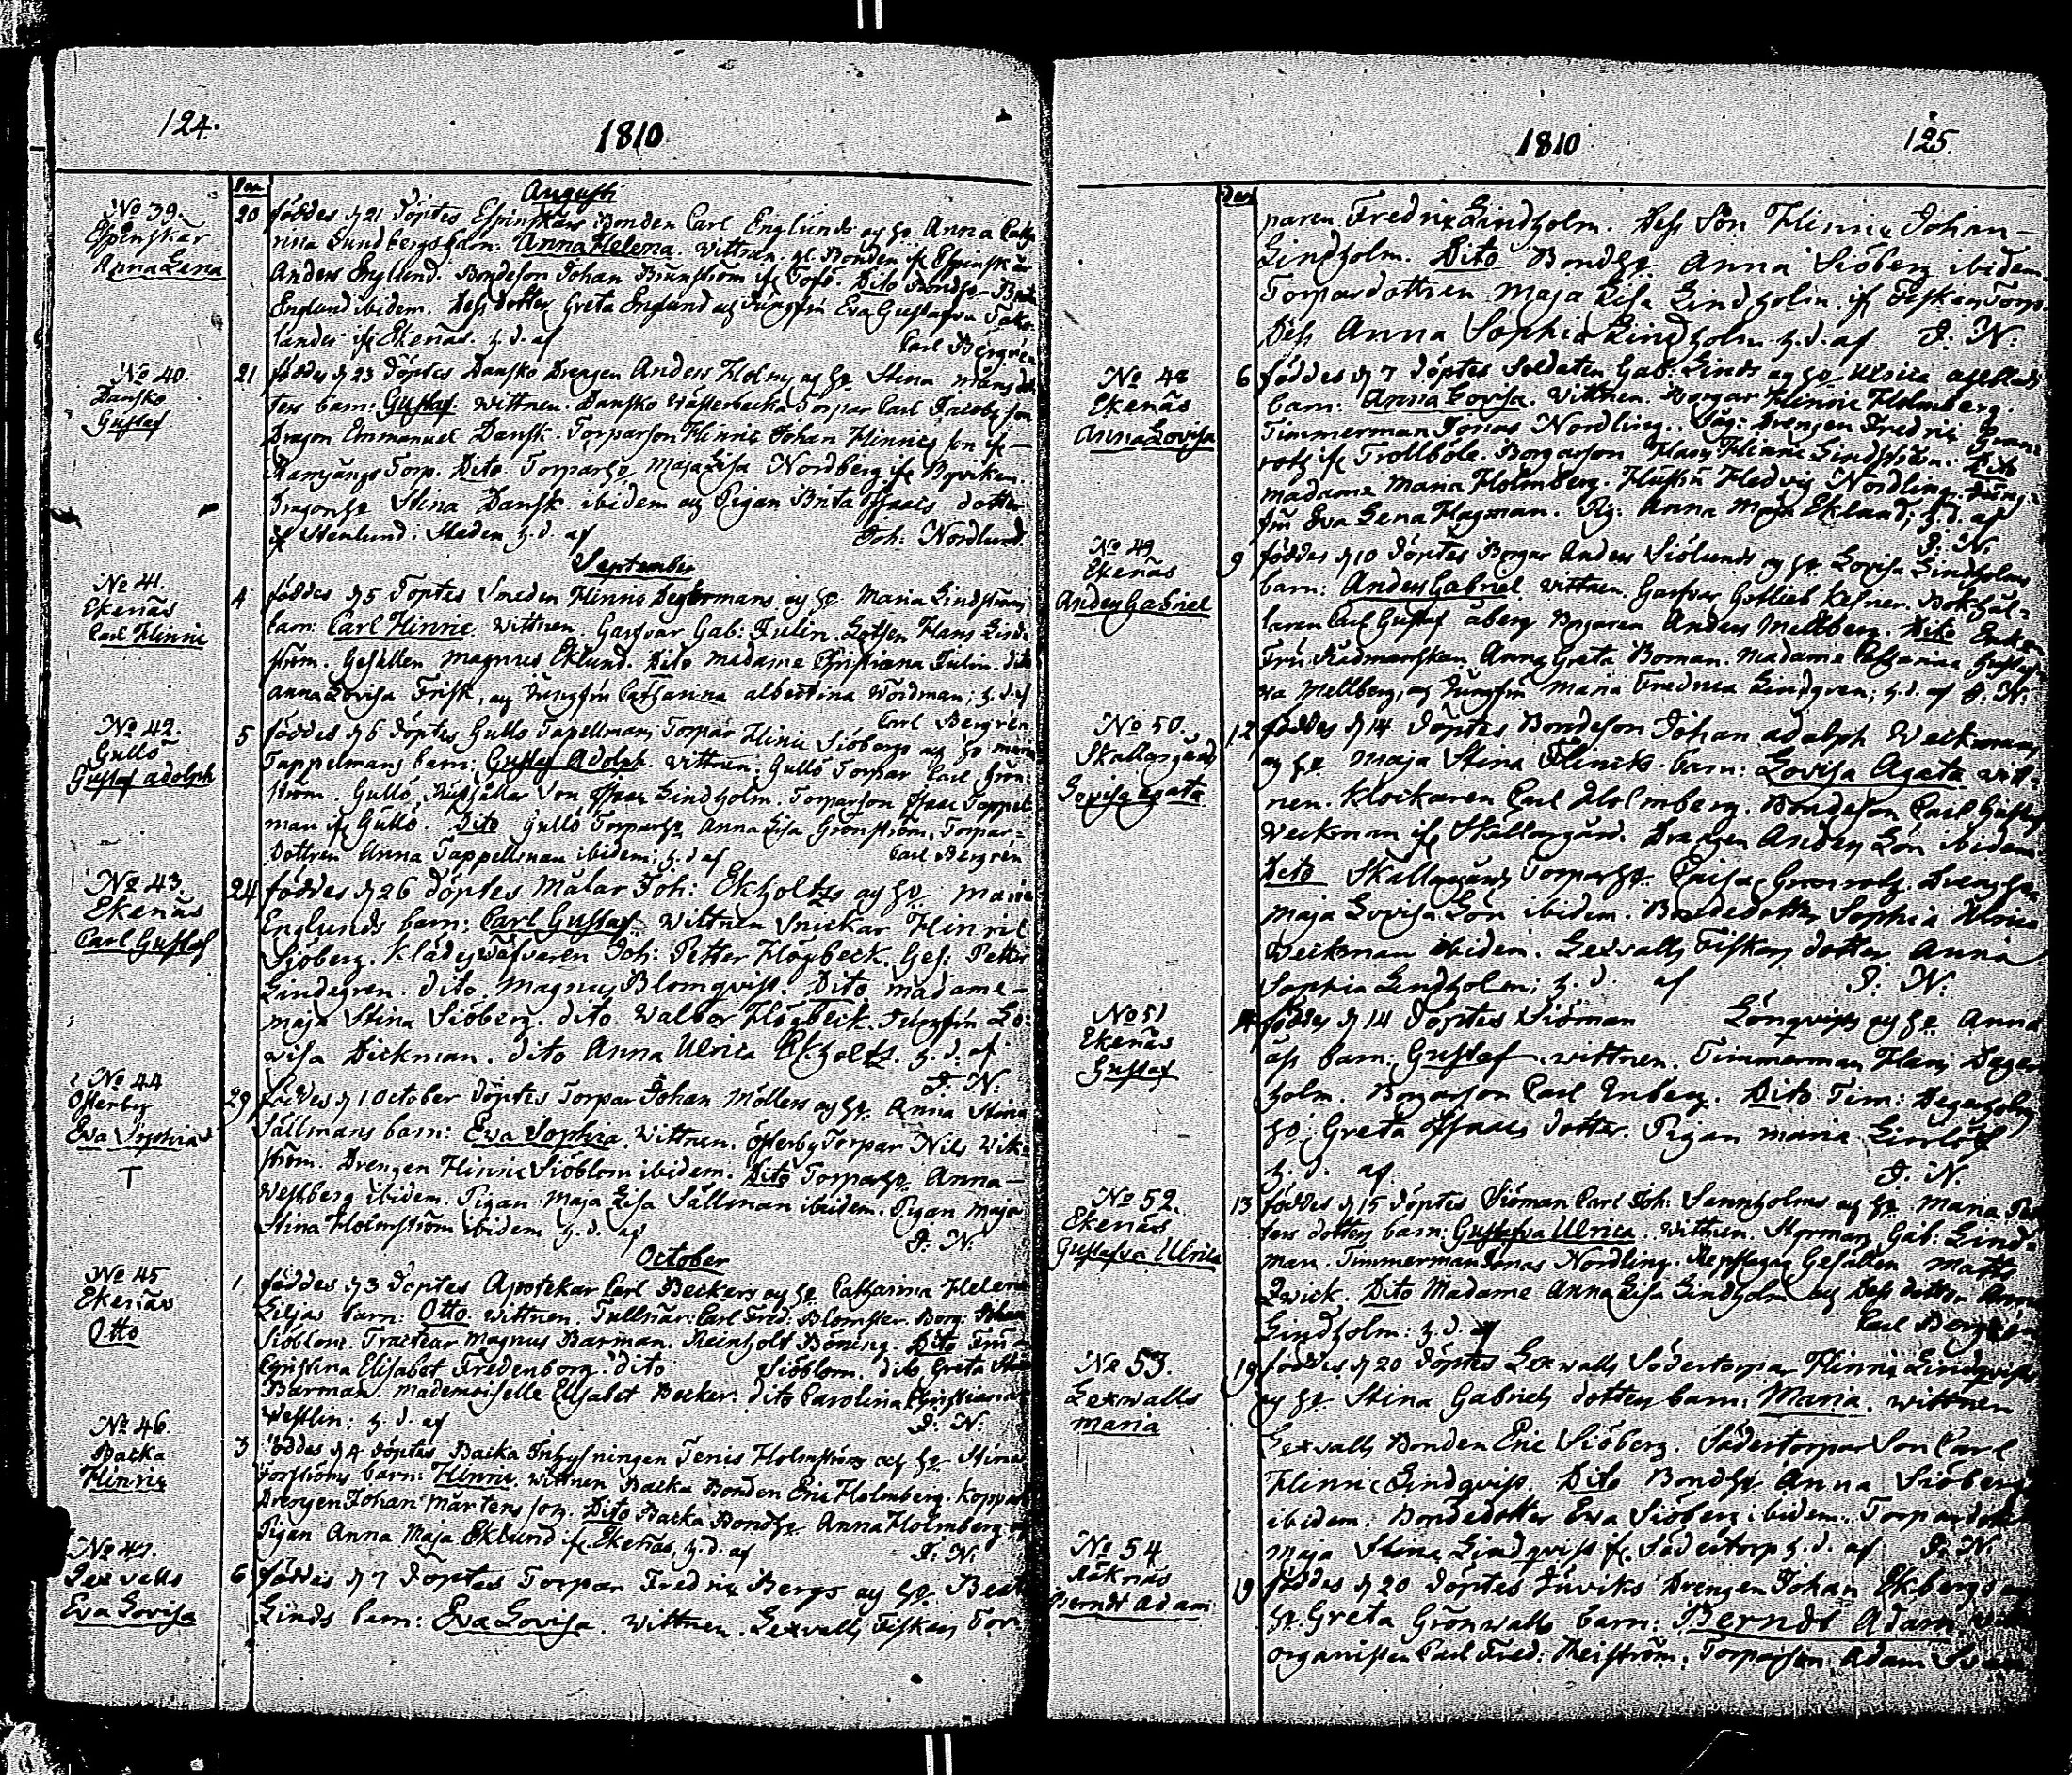 124.
1810
Den
Augusti
No 39.
Espinskär
Anna Lena
20 föddes d 21 döptes Espinskärs Bonden Carl Englunds och h. Anna Catha
rina Lundbergs barn: Anna Helena. Wittnen. Bonden if Espinskär
Anders Englund. Bondeson Johan Brunström if Torsö. Dito Bondh.
Englund ibidem. Dess dotter Greta Englund och Jungfru Eva Gustafva
lander if Ekenäs. h. d. af
Carl Bergrén
No 40.
Dansko
Gustaf
21 föddes d 23 döptes Dansko Drengen Anders Holms och h. Stina Mångs dot
ters barn: Gustaf Wittnen. Dansko Torpar Carl Jacobs son
Dragon Emmanuel Dansk. Torparson Hinric Johan Hinrics son if
Torp. Dito. Torparh. Maja Lisa Nordberg if Byviken.
Dragonh. Stina Dansk. ibidem och Pigan Brita Isaacs dotter
if Stenlund: Staden h. d. af
Joh: Nordlund
September
No 41.
Ekenäs
Carl Hinric
4 föddes d 5 döptes Smeden Hinric Degermans och h. Maria Lindströms
barn: Carl Hinric. Wittnen. Garfvar Gab: Julin. Lotsen Hans Lind-
ström. Gesällen Magnus Eklund. Dito Madame Christiana Julin. dito
Anna Lovisa Frisk, och Jungfru Catharina Albertina Nordman; h. d. af
Carl Bergrén
No 42.
Gullö
Gustaf Adolph
5 föddes d 6 döptes Gullö Tapellmans Torpar Hinric Siöbergs och h. Maria
Tappelmans barn: Gustaf Adolph. Wittnen: Gullö Torpar Carl Grön-
ström. Gullö Isaac Lindholm. Torparson Isaac Tappel
man if Gullö. Dito Gullö Torparh. Anna Lisa Grönström. Torpar-
dottren Anna Tappellman ibidem; h. d. af
Carl Bergrén
No 43.
Ekenäs
Carl Gustaf
24 föddes d 26 döptes Målar Joh: Ekholtzs och h. Maria
Englunds barn: Carl Gustaf. Wittnen Snickar Hinric
Sjöberg. Klädesväfvaren Joh: Petter Högbeck. Ges: Petter
Lindegren. dito Magnus Blomqvist. Dito Madame
Maja Stina Siöberg. dito Walbor Högbeck. Jungfru Lo-
visa Dickman. dito Anna Ulrica Ekholtz. h. d. af
J. N.
No 44
Österby
Eva Sophia
T
29 föddes d 1 October döptes Torpar Johan Möllers och h. Anna Stina
Sällmans barn: Eva Sophia. Wittnen. Österby Torpar Nils Wik-
ström. Drengen Hinric Siöblom ibidem. Dito Torparh. Anna
Westberg ibidem. Pigan Maja Lisa Sällman ibidem. Pigan Maja
Stina Holmström ibidem h. d. af
J. N.
October
No 45
Ekenäs
Otto
1 föddes d 3 döptes Apotekar Carl Beckers och h. Catharina Helena
Liljas barn: Otto. Wittnen. Tullnär: Carl Fred: Blomster. Borg: Johan
Siöblom. Tracteur Magnus Barman. Reinholt Böning. Dito Fru
Christina Elisabet Fredenborg. dito Siöblom. dito Greta Stina
Barman. Mademoiselle Elisabet Becker. dito Carolina Christiana
Westlin: h. d. af
J. N.
No 46.
Backa
Hinric
3 föddes d 4 döptes Backa Inhysningen Tenis Holmströms och h. Stina
Forströms barn: Hinric. Wittnen Backa Bonden Eric Holmberg.
Drengen Johan Mårtens son. Dito Backa Bondh. Anna Holmberg
Pigan Anna Maja Eklund if Ekenäs h. d. af
J. N.
No 47.
Lexvalls
Eva Lovisa
6 föddes d 7 döptes Torpar Fredric Bergs och h. Beata
Linds barn: Eva Lovisa. Wittnen. Lexvalls Fiskars Tor-
1810
125.
Den
paren Fredric Lindholm. Dess Son Hinric Johan
Lindholm. Dito Bondh. Anna Siöberg ibidem
Torpardottren Maja Lisa Lindholm if Fiskars Torp
Dess Anna Sophia Lindholm h. d. af J. N.
No 48
Ekenäs
Anna Lovisa
6 föddes d 7 döptes Soldaten Gab: Linds och h. Ulrica
barn: Anna Lovisa. Wittnen. Borgar Hinric Holmberg.
Timmerman Jonas Nordling. Drengen Fredric Gran-
roth if Trollböle. Borgarson Hinric Lindström. Dito
Madame Maria Holmberg. Hustru Hedvig Nordling. Jung-
fru Eva Lena Hagman. Pig: Anna Maja Eklund; h. d. af
J. N.
No 49.
Ekenäs
Anders Gabriel
9 föddes d 10 döptes Borgar Anders Siölunds och h. Lovisa Lindholms
barn: Anders Gabriel. Wittnen. Garfvar Gotlieb Kefner. Bokhål-
laren Carl Gustaf Åberg Borgaren Anders Mellberg. Dito Enke
Fru Rådmanskan Anna Greta Boman. Madame Catharina Gustaf-
va Mellberg, och Jungfru Maria Fredrica Lindgren; h. d. af J. N.
No 50.
Skallargård
Lovisa Agata
12 föddes d 14 döptes Bondeson Johan Adolph Weckmans
och h. Maja Stina Flincks barn: Lovisa Agata Witt-
nen. Klockaren Carl Holmberg. Bondeson Carl Gustaf
Weckman if Skållargård. Drengen Anders Lön ibidem.
Dito Skallargårds Torparh. Caisa Granroth. Drengh.
Maja Lovisa Lön ibidem. Bondedotter Sophia Ulrica
Weckman ibidem. Lexvalls Fiskars dotter Anna
Sophia Lindholm; h. d. af J. N.
No 51
Ekenäs
Gustaf
föddes d 14 döptes Siöman Lönqvists och h. Anna
barn: Gustaf. Wittnen. Timmerman Hans Deger
holm. Borgarson Carl Enberg. Dito Tim: Degerholms
h. Greta Isaacs dotter. Pigan Maria Lindlöf
h. d. af J. N.
No 52.
Ekenäs
Gustafva Ulrica
13 föddes d 15 döptes Siöman Carl Joh: Sannholms och h. Maria Pet
ters dotters barn: Gustafva Ulrica. Wittnen. Styrman Gab: Lind-
man. Timmerman Jonas Nordling. Repslagar Gesällen Matts
Qvick. Dito Madame Anna Lisa Lindholm och Dess dotter Anna
Lindholm: h. d. af
Carl Bergrén
No 53.
Lexwalls
Maria
19 föddes d 20 döptes Lexwalls Södertorpar Hinric Lindqvists
och h. Stina Gabriels dotters barn: Maria. Wittnen
Lexvalls Bonden Eric Siöberg. Södertorpar Son Carl
Hinric Lindqvist. Dito Bondh. Anna Siöberg
ibidem. Bondedotter Eva Siöberg ibidem. Torpardotter
Maja Stina Lindqvist if Södertorp h. d. af J. N.
No 54
Råknäs
Berndt Adam
19 föddes d 20 döptes Drengen Johan Ekbergs
h. Greta Grönwalls barn: Berndt Adam.
Organisten Carl Fred: Reiström. Torparson Adam